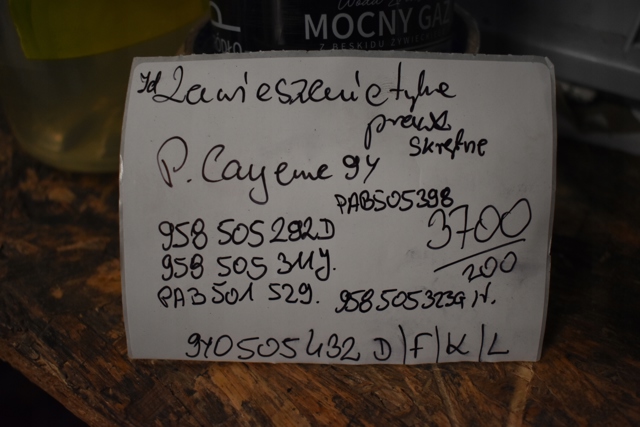 MOCNY GAZ
Z BESKIDU ŻYWIEC
Zawieszenie tylne
prawe
skrętne
P. Cayenne 9Y
PAB505398
958 505 282D
3700
958 505 311J.
200
PAB 501 529.
958505323G N.
9Y0505432 D/F/K/L